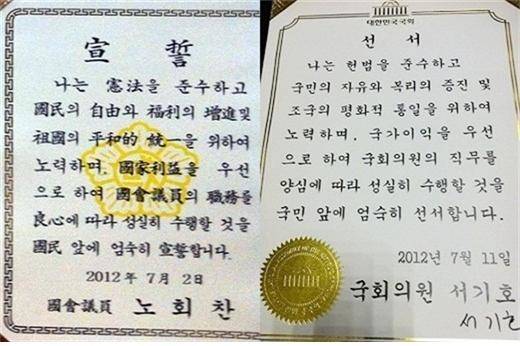 宣誓
나는 憲法을 준수하고
國民의 自由와 福利의 增進 및
祖國의 平和的 統一을 위하여
노력하며, 國家利益을 우선
으로 하여 國會議員의 職務를
良心에 따라 성실히 수행할 것을
國民 앞에 엄숙히 宣誓합니다.
2012年 7月 2日
國會議員 노회찬
대한민국국회
선서
나는 헌법을 준수하고
국민의 자유와 복리의 증진 및
조국의 평화적 통일을 위하여
노력하며, 국가이익을 우선
으로 하여 국회의원의 직무를
양심에 따라 성실히 수행할 것을
국민 앞에 엄숙히 선서합니다.
2012년 7월 11일
국회의원 서기호
서기호